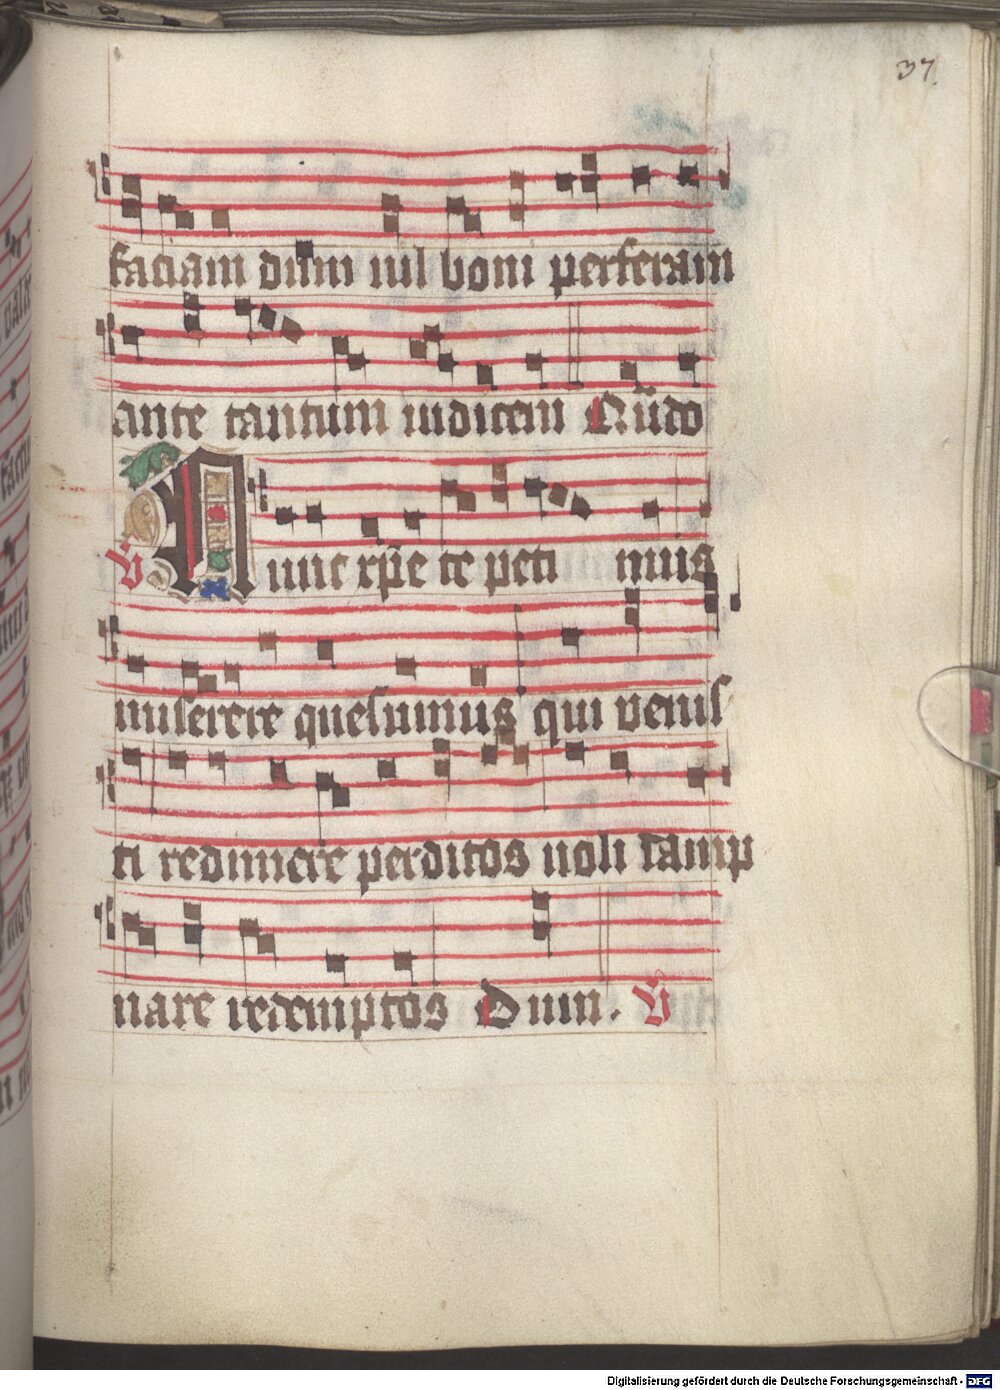 37
faciam dum nil boni perferam
ante tantum iudicem Qũdo
V Nunc xp̃e te peti mus
miserere quesumus qui venis
ti redimere perditos noli damp
nare redemptos Dum. V
Digitalisierung gefördert durch die Deutsche Forschungsgemeinschaft - DFG